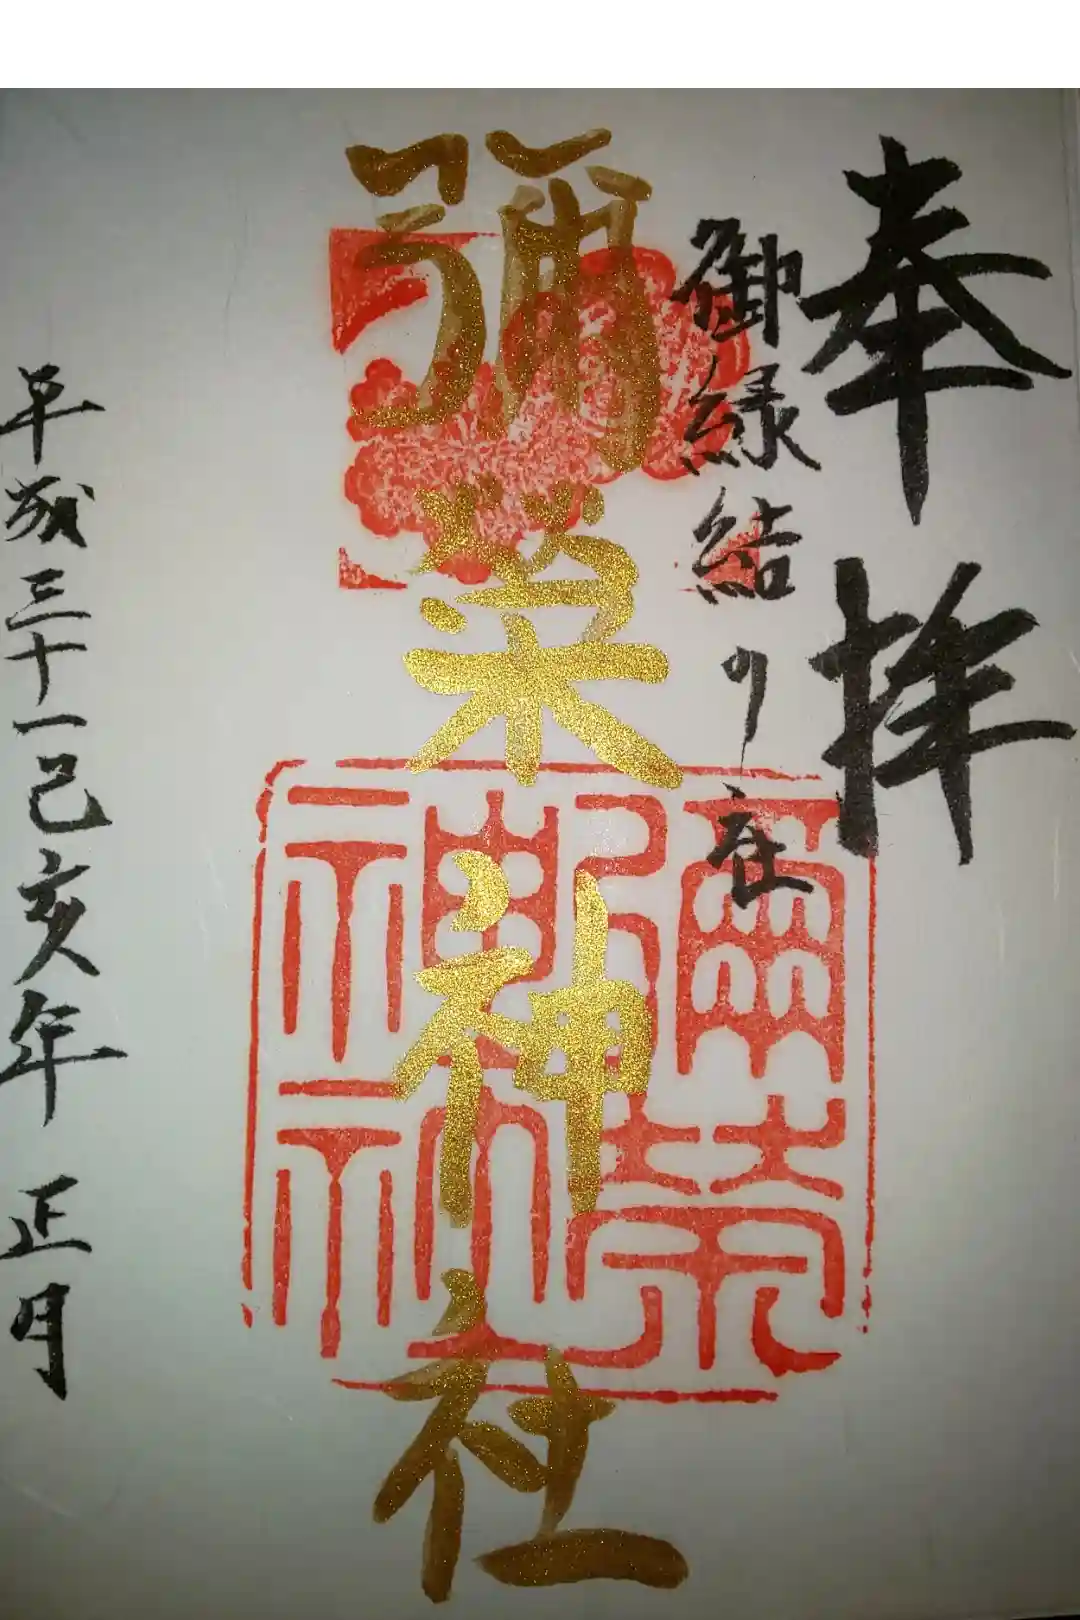 奉拝
御縁結の社
彌榮神社
彌榮神社
平成三十一己亥年 正月